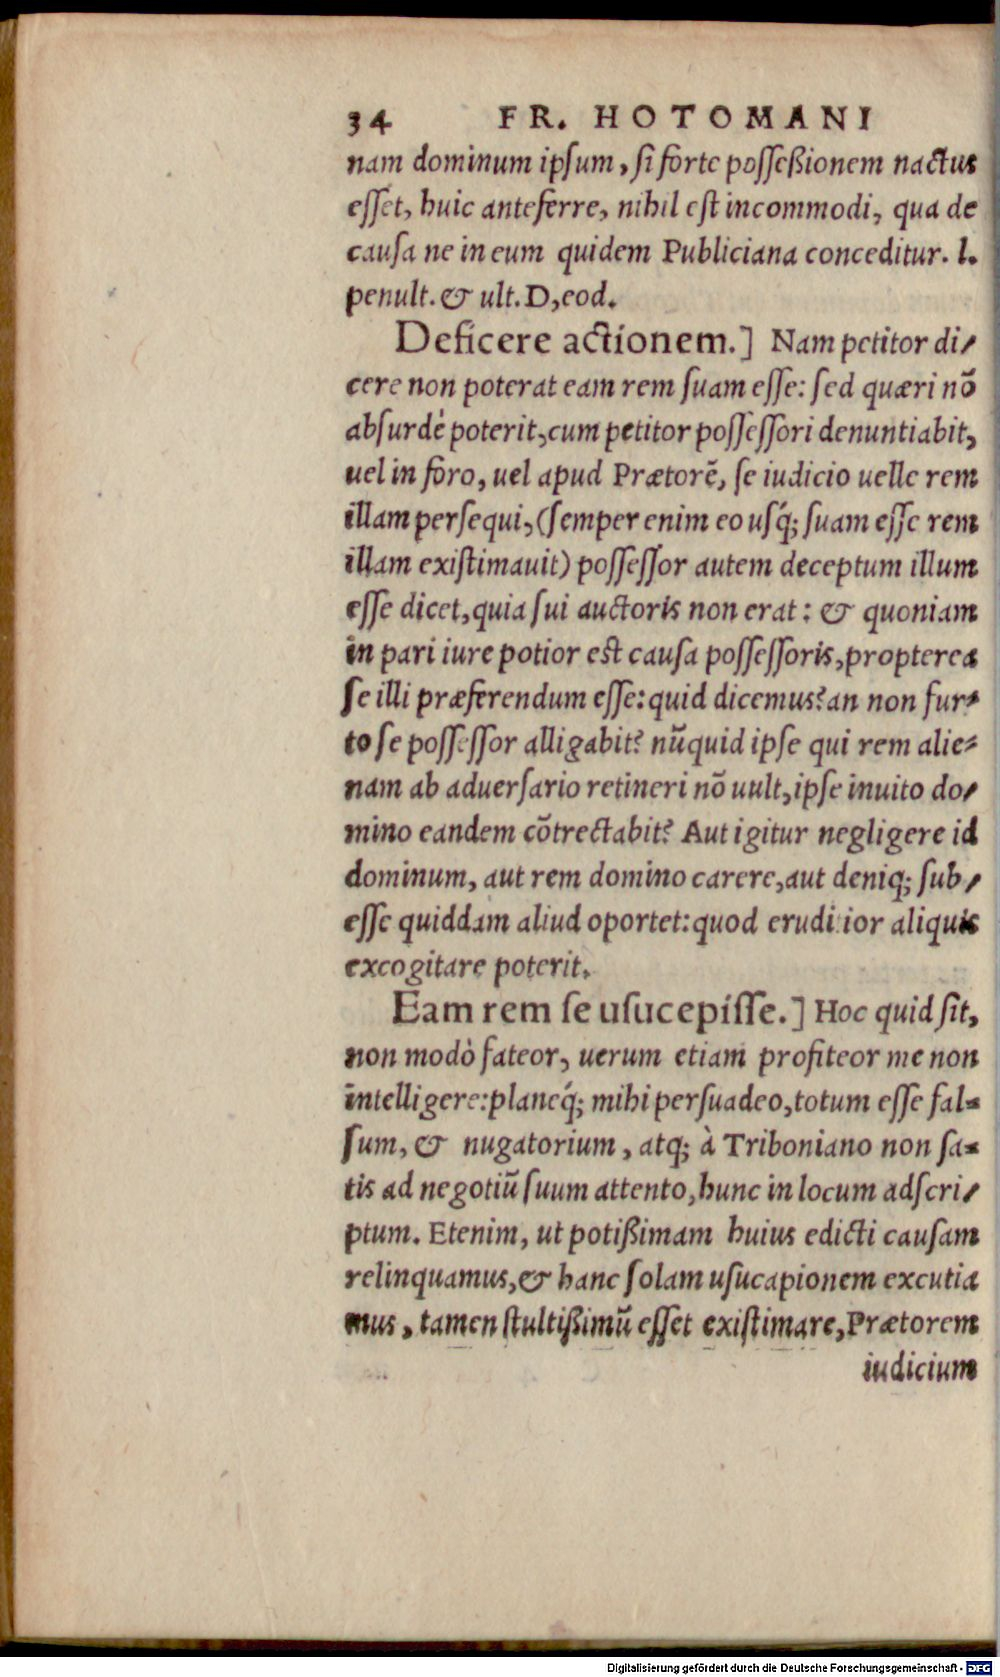 34 FR. HOTOMANI
nam dominum ipſum, ſi forte poſſeßionem nactus
eſſet, huic anteferre, nihil eſt incommodi, qua de
cauſa ne in eum quidem Publiciana conceditur. l.
penult. & ult. D, eod.
Deficere actionem.] Nam petitor di-
cere non poterat eam rem ſuam eſſe: ſed quæri nõ
abſurdè poterit, cum petitor poſſeſſori denuntiabit,
uel in foro, uel apud Prætorẽ, ſe iudicio uelle rem
illam perſequi, (ſemper enim eo uſq́; ſuam eſſe rem
illam exiſtimauit) poſſeſſor autem deceptum illum
eſſe dicet, quia ſui auctoris non erat: & quoniam
in pari iure potior est cauſa poſſeſſoris, propterea
ſe illi præferendum eſſe: quid dicemus? an non fur-
to ſe poſſeſſor alligabit? nũquid ipſe qui rem alie-
nam ab aduerſario retineri nõ uult, ipſe inuito do-
mino eandem cõtrectabit? Aut igitur negligere id
dominum, aut rem domino carere, aut deniq; ſub-
eſſe quiddam aliud oportet: quod eruditior aliquis
excogitare poterit.
Eam rem ſe uſucepiſſe.] Hoc quid ſit,
non modò fateor, uerum etiam profiteor me non
intelligere: planeq́; mihi perſuadeo, totum eſſe fal-
ſum, & nugatorium, atq; à Triboniano non ſa-
tis ad negotiũ ſuum attento, hunc in locum adſcri-
ptum. Etenim, ut potißimam huius edicti cauſam
relinquamus, & hanc ſolam uſucapionem excutia
mus, tamen ſtultißimũ eſſet exiſtimare, Prætorem
iudicium
Digitalisierung gefördert durch die Deutsche Forschungsgemeinschaft - DFG